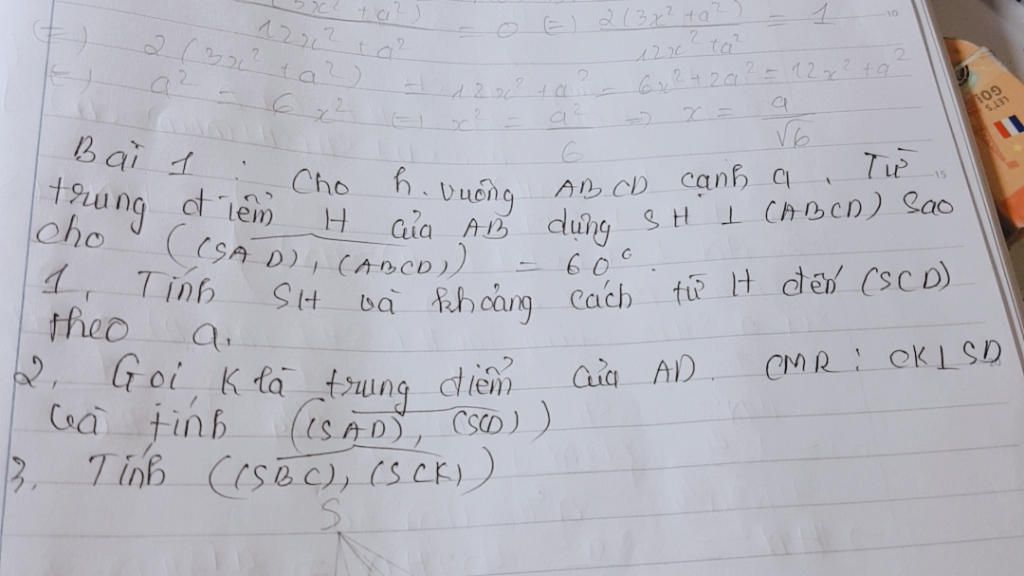 (3x² + a²) / 12x² + a² = 0 (=) 2(3x² + a²) / 12x² + a² = 1
10
(=) 2(3x² + a²) = 12x² + a² = 6x² + 2a² = 12x² + a²
(=) a² = 6x² (=) x² = a² / 6 => x = a / √6
Bài 1 : Cho h. vuông ABCD cạnh a. Từ
15
trung điểm H của AB dựng SH ⊥ (ABCD) sao
cho ((SAD), (ABCD)) = 60°.
1, Tính SH và khoảng cách từ H đến (SCD)
theo a.
2, Gọi K là trung điểm của AD. CMR : CK⊥SD
và tính ((SAD), (SCD))
3, Tính ((SBC), (SCK))
S
LET'S GO!